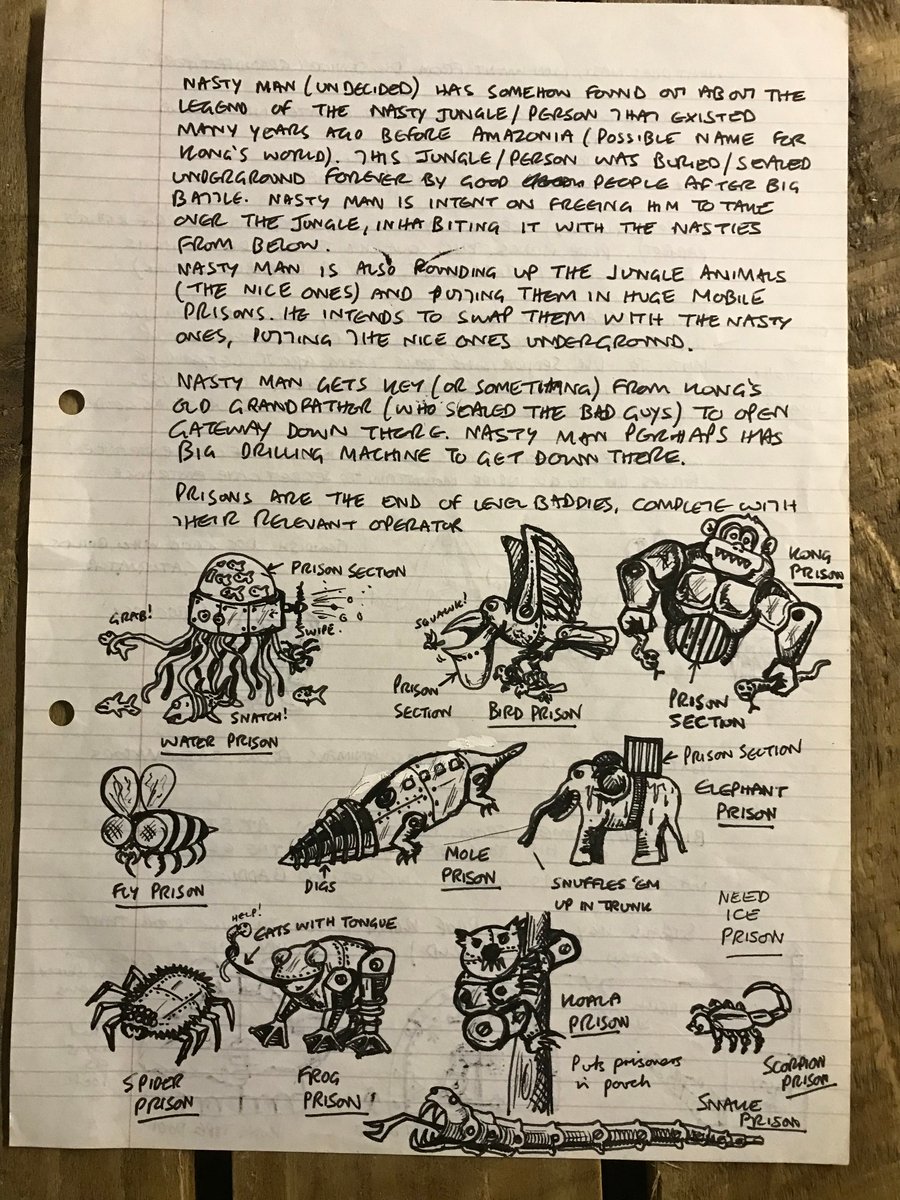 NASTY MAN (UNDECIDED) HAS SOMEHOW FOUND OUT ABOUT THE
LEGEND OF THE NASTY JUNGLE/PERSON THAT EXISTED
MANY YEARS AGO BEFORE AMAZONIA (POSSIBLE NAME FOR
KONG'S WORLD). THIS JUNGLE/PERSON WAS BURIED/SEALED
UNDERGROUND FOREVER BY GOOD PEOPLE AFTER BIG
BATTLE. NASTY MAN IS INTENT ON FREEING HIM TO TAKE
OVER THE JUNGLE, INHABITING IT WITH THE NASTIES
FROM BELOW.
NASTY MAN IS ALSO ROUNDING UP THE JUNGLE ANIMALS
(THE NICE ONES) AND PUTTING THEM IN HUGE MOBILE
PRISONS. HE INTENDS TO SWAP THEM WITH THE NASTY
ONES, PUTTING THE NICE ONES UNDERGROUND.
NASTY MAN GETS KEY (OR SOMETHING) FROM KONG'S
OLD GRANDFATHER (WHO SEALED THE BAD GUYS) TO OPEN
GATEWAY DOWN THERE. NASTY MAN PERHAPS HAS
BIG DRILLING MACHINE TO GET DOWN THERE.
PRISONS ARE THE END OF LEVEL BADDIES, COMPLETE WITH
THEIR RELEVANT OPERATOR
PRISON SECTION
GRAB!
SWIPE.
SNATCH!
WATER PRISON
SQUAWK!
PRISON
SECTION
BIRD PRISON
KONG
PRISON
PRISON
SECTION
FLY PRISON
DIGS
MOLE
PRISON
PRISON SECTION
ELEPHANT
PRISON
SNUFFLES 'EM
UP IN TRUNK
NEED
ICE
PRISON
SPIDER
PRISON
HELP!
EATS WITH TONGUE
FROG
PRISON
KOALA
PRISON
Puts prisoners
in pouch
SCORPION
PRISON
SNAKE
PRISON